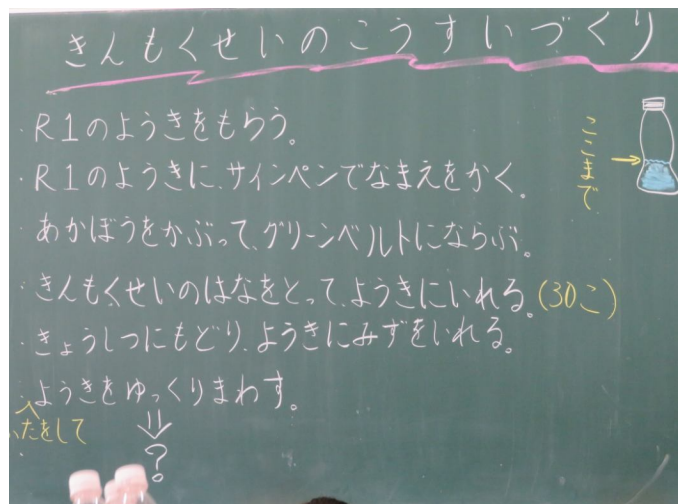 きんもくせいのこうすいづくり
・R1のようきをもらう。
・R1のようきに、サインペンでなまえをかく。
あかぼうをかぶって、グリーンベルトにならぶ。
・きんもくせいのはなをとって、ようきにいれる。(30こ)
・きょうしつにもどり、ようきにみずをいれる。
ようきをゆっくりまわす。
たをして
?
ここまで